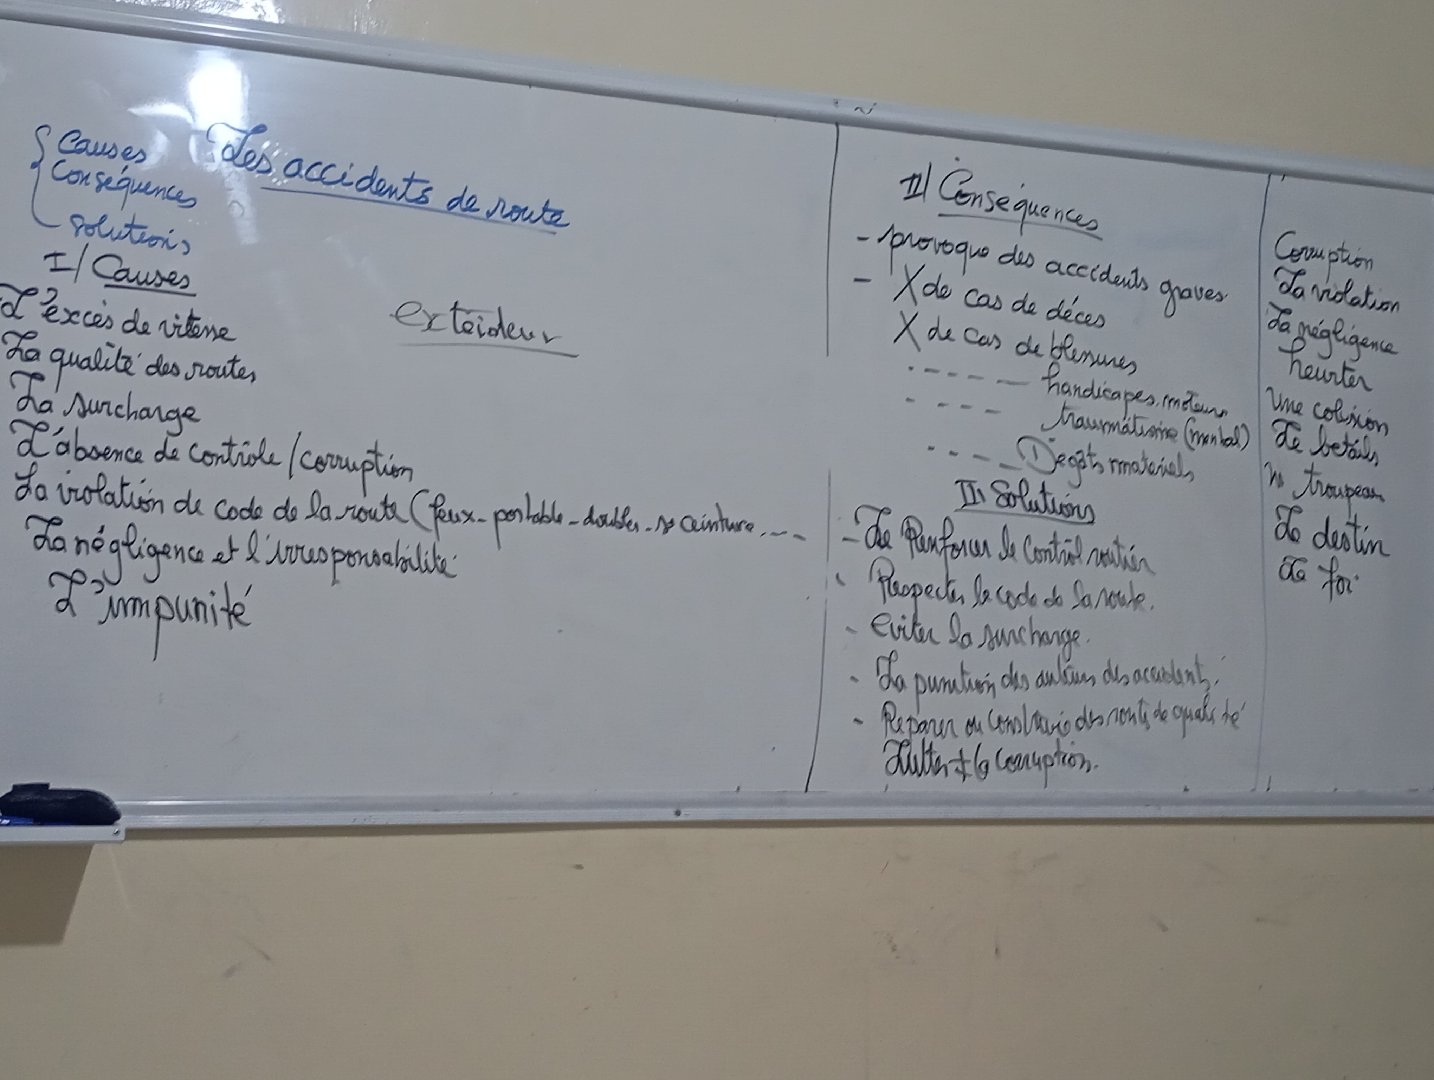 Causes
Conséquences
solutions
Les accidents de route
I/ Causes
L'excès de vitesse
La qualité des routes
La surcharge
L'absence de contrôle/corruption
La violation de code de la route (feux - portable - doubler - ceinture....
La négligence et l'irresponsabilité
L'impunité
II/ Conséquences
- provoque des accidents graves
- X de cas de décès
X de cas de blessures
- - - - - handicapes moteurs
- - - - traumatisme (mental)
- - - - Dégats matériels
III Solutions
- Renforcer le control routier
- Respecter le code de la route.
- eviter la surcharge.
- La punition des auteurs des accidents.
- Réparer ou construire des routes de qualité
Lutter + la corruption.
Corruption
La violation
La négligence
heurter
une colision
Le betails
troupeau
Le destin
La foi